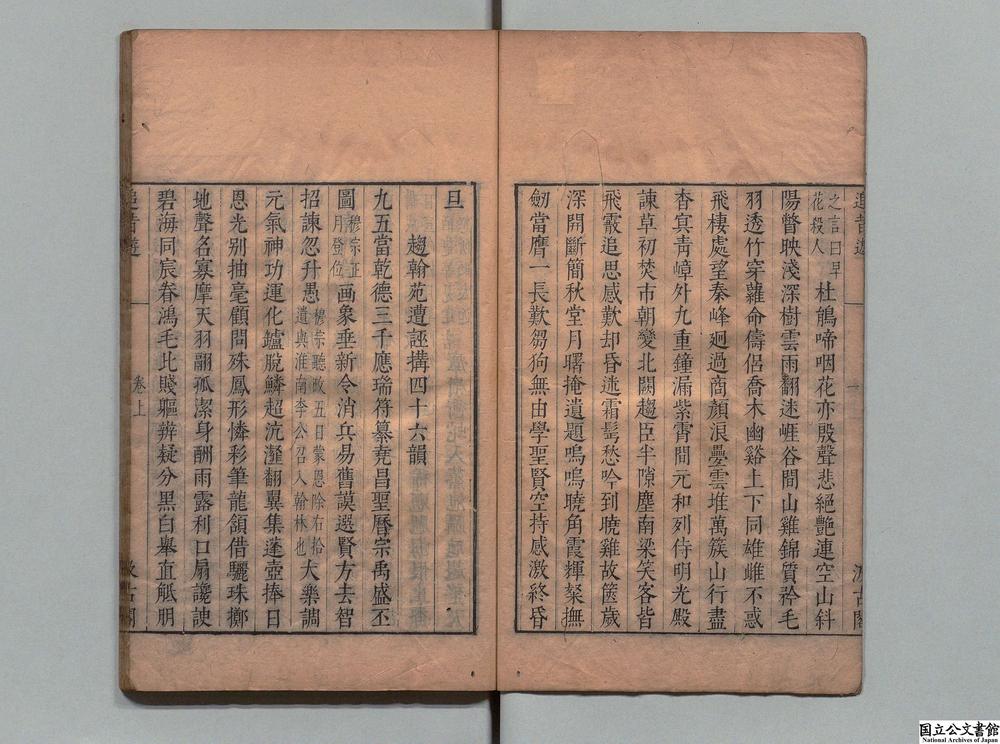 追昔遊
一
汲古閣
之言曰早
花殺人
杜鵑啼咽花亦殷聲悲絕艷連空山斜
陽瞥映淺深樹雲雨翻迷崕谷間山雞錦質矜毛
羽透竹穿蘿命儔侶喬木幽谿上下同雄雌不惑
飛棲處望秦峰迥過商顏浪疊雲堆萬簇山行盡
杳冥靑嶂外九重鐘漏紫霄間元和列侍明光殿
諫草初焚市朝變北闕趨臣半隙塵南梁笑客皆
飛霰追思感歎却昏迷霜髩愁吟到曉雞故篋歲
深開斷簡秋堂月曙掩遺題嗚嗚曉角霞輝粲撫
劒當膺一長歎芻狗無由學聖賢空持感激終昏
旦
趨翰苑遭誣搆四十六韻
九五當乾德三千應瑞符纂堯昌聖曆宗禹盛丕
圖
穆宗正
月登位
画象垂新令消兵易舊謨選賢方去智
招諫忽升愚
穆宗聽政五日蒙恩除右拾
遺與淮南李公召入翰林也
大樂調
元氣神功運化鑪脫鱗超沆瀣翻翼集蓬壺捧日
恩光别抽毫顧問殊鳳形憐彩筆龍頷借驪珠擲
地聲名寡摩天羽翮孤潔身酬雨露利口扇讒諛
碧海同宸眷鴻毛比賤軀辨疑分黑白舉直觝朋
追昔遊
卷上
汲古閣
国立公文書館
National Archives of Japan